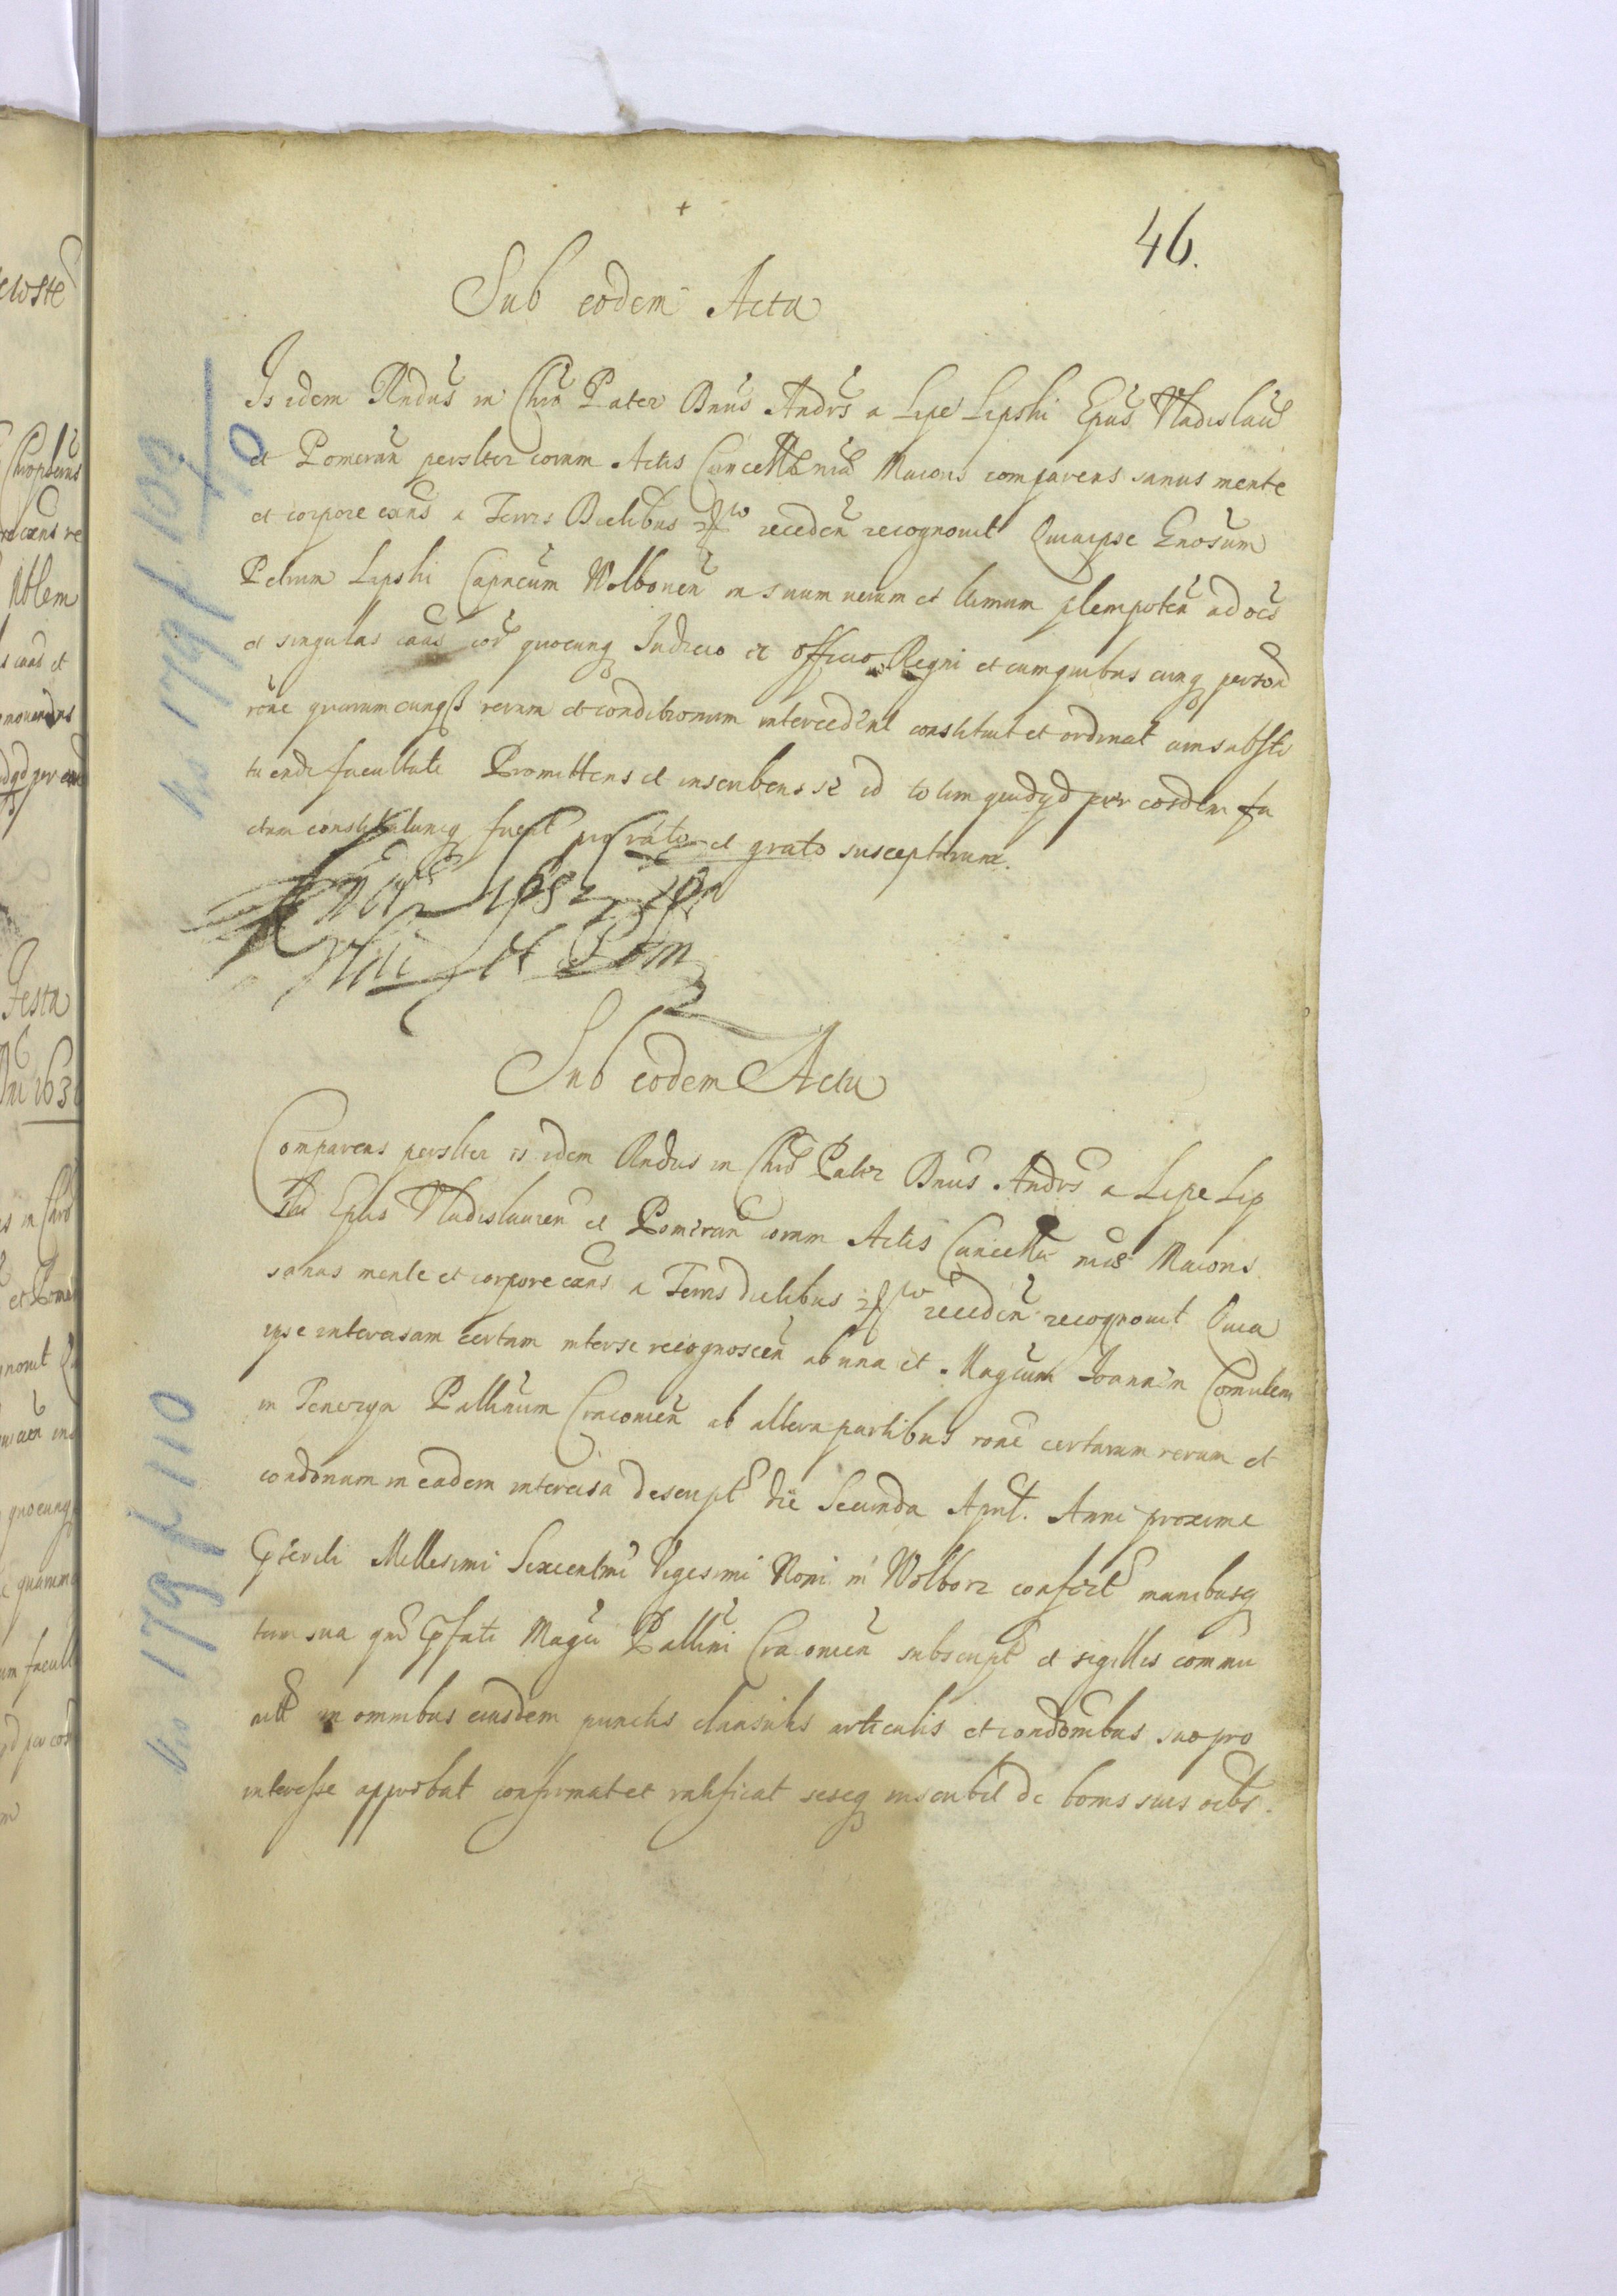 46.
Sub eodem Actu
Is idem Rndus in Chro Pater Dnus Andrs a Lipe Lipski Epus Vladislau
et Pomeran perslter coram Actis Cancellae mae Maioris comparens sanus mente
et corpore exns a Terris Dictibus receden recognouit Quia ipse Gnosum
Petrum Lipski Capneum Wolborien in suum verum et ltimum plempoten ad oes
et singulas caus cor quocunq Iudicio et officio Regni et cum quibus cunq person
rone quarumcunq rerum et conditionum interceden constituit et ordinat cum substi
tuendi facultate Promittens et inscribens se id totum quidqd per eosdem fa
ctum constitutumq fuerit pro rato et grato suscepturum.
Sub eodem Actu
Comparens perslter is idem Rndus in Chro Pater Dnus Andrs a Lipe Lip
ski Epus Vladislauien et Pomeran coram Actis Cancellae mae Maioris
sanus mente et corpore exns a Terris dictibus recedin recognouit Quia
ipse intercisam certam inter se recognoscen ab una et Magcum Ioannem Comitem
in Tenczyn Pallinum Cracouien ab altera partibus rone certarum rerum et
condonum in eadem intercisa descript die Secunda April. Anni proxime
pteriti Millesimi Sexcentmi Vigesimi Noni in Wolborz confect manibusq
tum sua qm pfati Magci Pallini Cracouien subscript et sigillis commu
nit in omnibus eiusdem punctis clausulis articulis et condonibus suo pro
interesse approbat confirmat et ratificat seseq inscribit de bonis suis oibs.
No 179 f 109
110
No 179 f 110